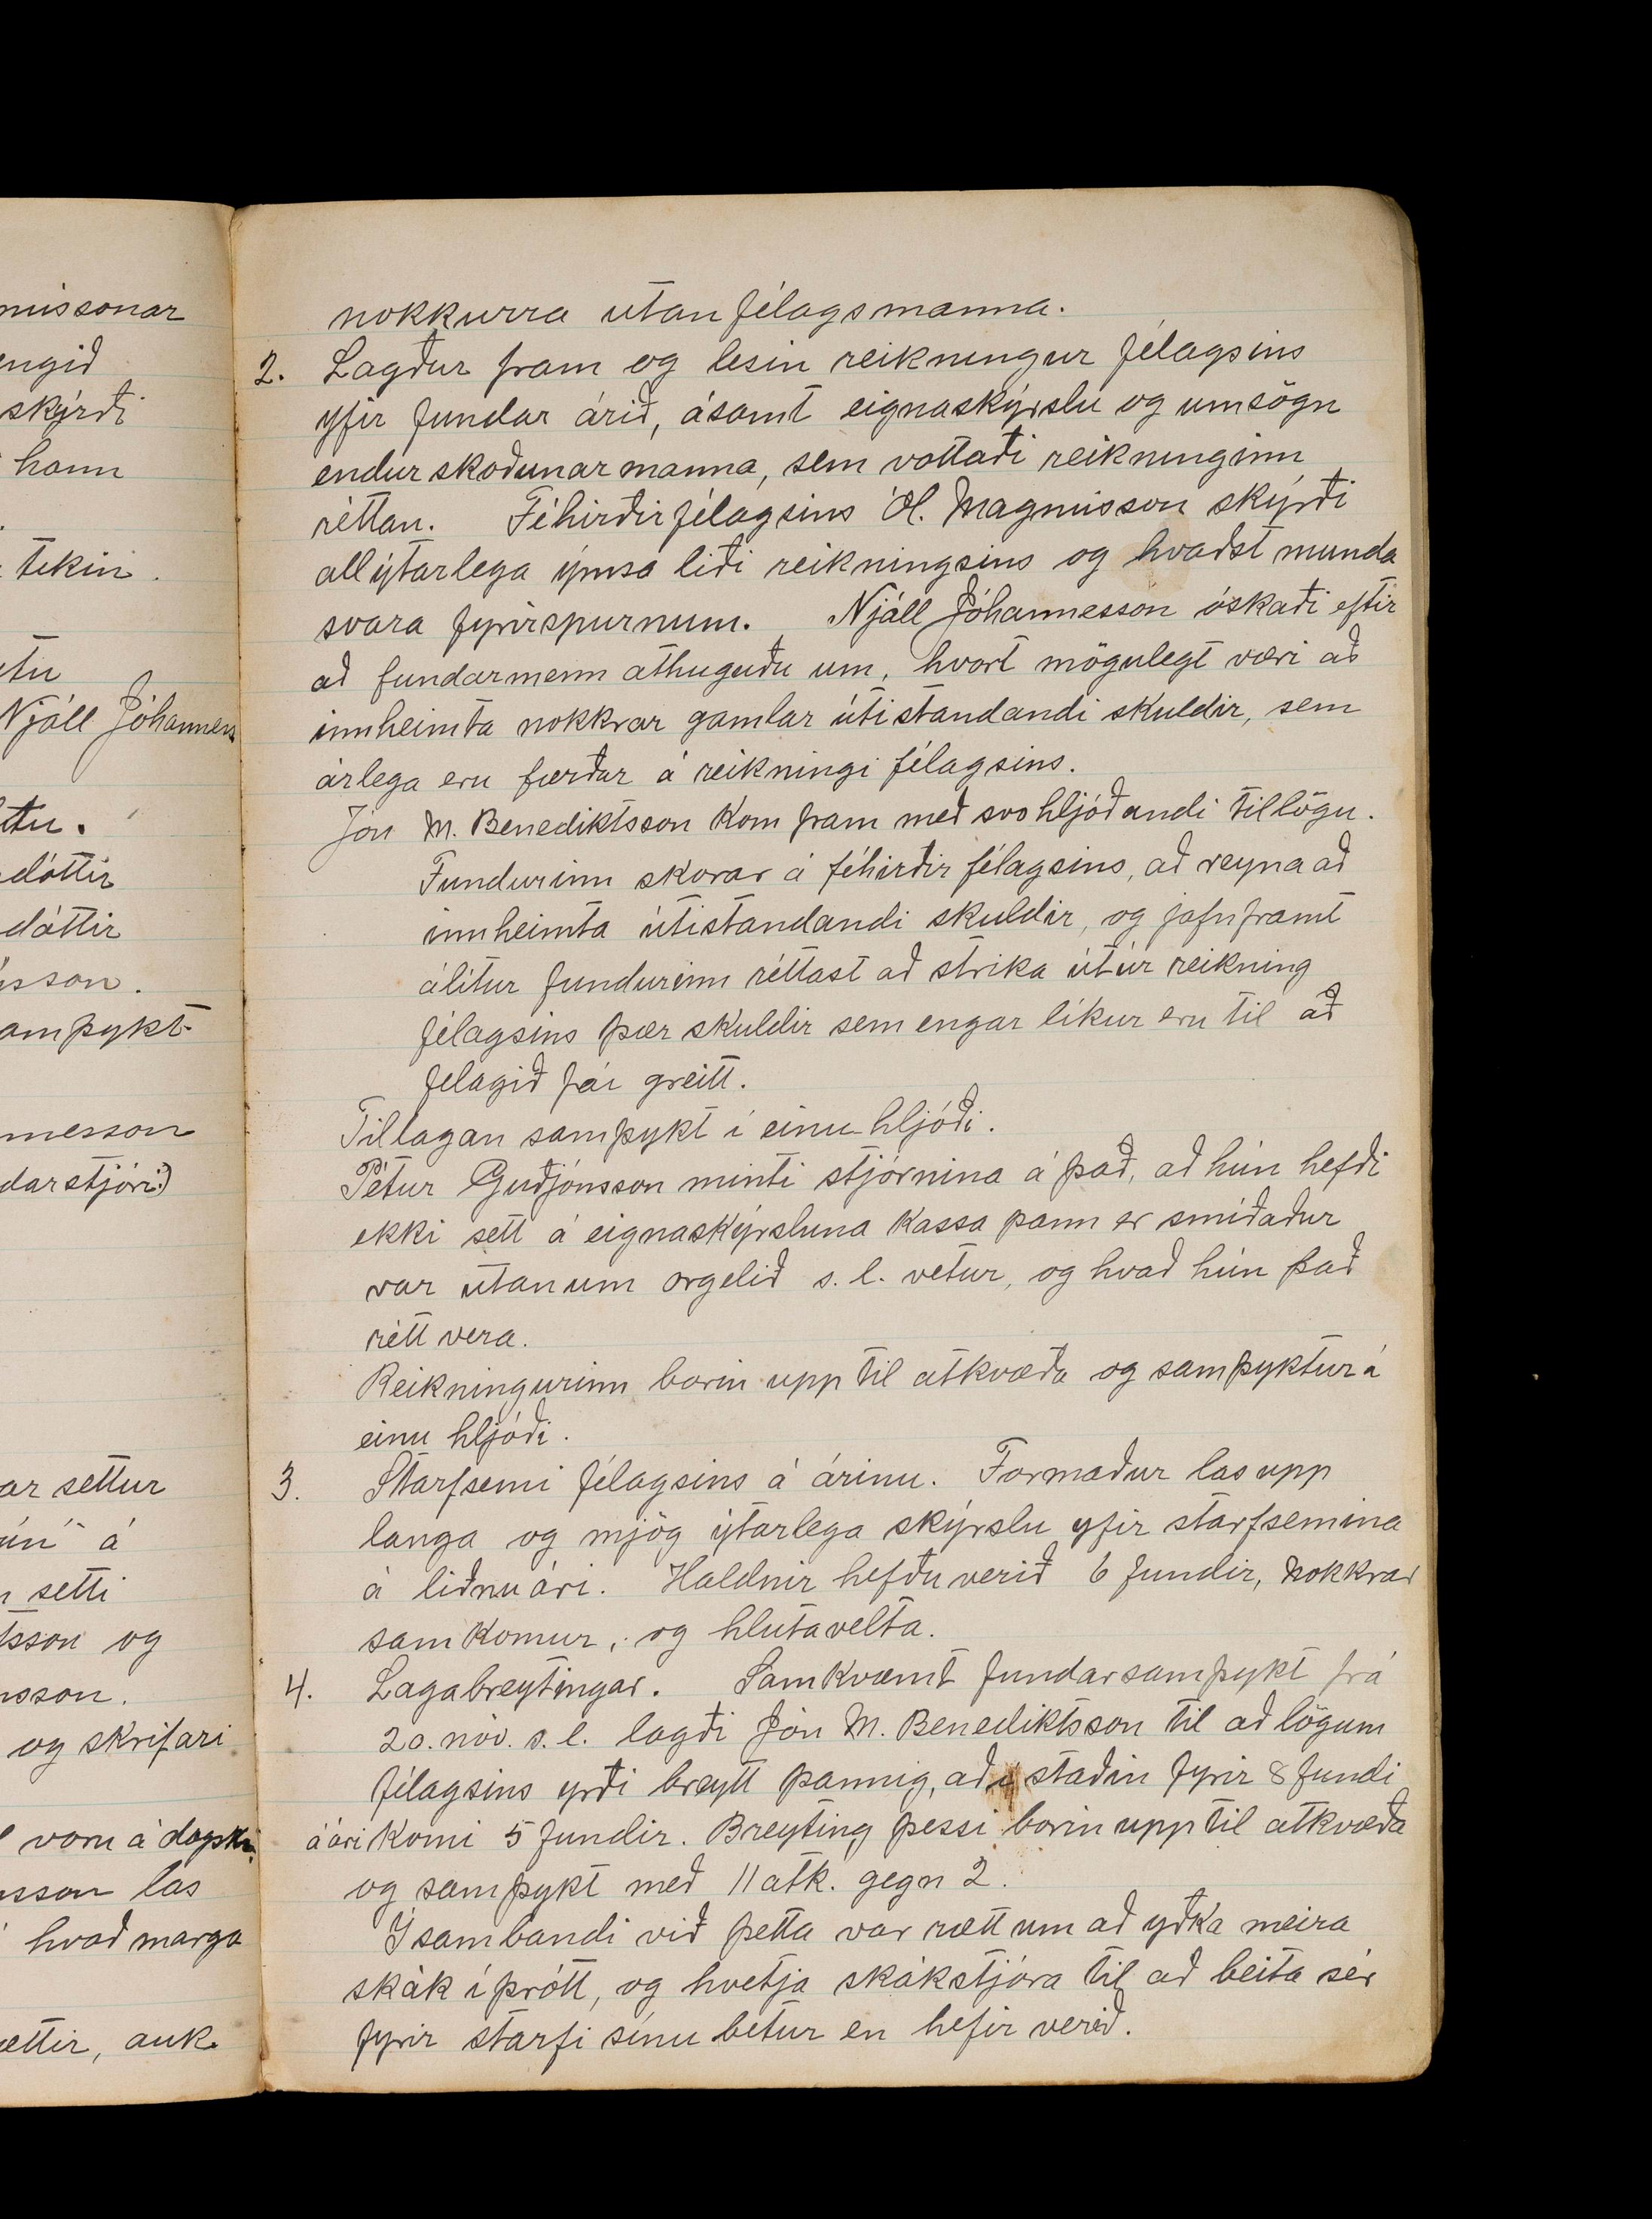 missonar
engið
skýrði
hann
tekin.
Njáll Jóhannes
dóttir
dóttir
sson.
ampykt
messon
darstjóri)
ar settur
ún" á
setti
tsson og
sson.
og skrifari
voru á dagskr.
sson las
hvað marga
ættir, auk
nokkurra utanfélagsmanna.
2. Lagður fram og lesin reikningur félagsins
yfir fundar árið, ásamt eignaskýrslu og umsögn
endurskoðunarmanna, sem vottaði reikninginn
réttan. Féhirðir félagsins Ól. Magnússon skýrði
allýtarlega ýmsa liði reikningsins og kvaðst munda
svara fyrirspurnum. Njáll Jóhannesson óskaði eftir
að fundarmenn athuguðu um, hvort mögulegt væri að
innheimta nokkrar gamlar útistandandi skuldir, sem
árlega eru færðar á reikningi félagsins.
Jón M. Benediktsson kom fram með svohljóðandi tillögu.
Fundurinn skorar á féhirðir félagsins, að reyna að
innheimta útistandandi skuldir, og jafnframt
álítur fundurinn réttast að strika útúr reikning
félagsins þær skuldir sem engar líkur eru til að
felagið fái greitt.
Tillagan samþykt í einu hljóði.
Pétur Guðjónsson minti stjórnina á það, að hún hefði
ekki sett á eignaskýrsluna kassa þann er smíðaður
var utanum orgelið s.l. vetur, og kvað hún það
rétt vera.
Reikningurinn borin upp til atkvæða og samþyktur í
einu hljóði.
3. Starfsemi félagsins á árinu. Formaður las upp
langa og mjög ýtarlega skýrslu yfir starfsemina
á liðnu ári. Haldnir hefðu verið 6 fundir, nokkrar
samkomur, og hlutavelta.
4. Lagabreytingar. Samkvæmt fundarsamþykt frá
20. nóv. s.l. lagði Jón M. Benediktsson til að lögum
félagsins yrði breytt þannig, að í staðin fyrir 8 fundi
á ári komi 5 fundir. Breyting þessi borin upp til atkvæða
og samþykt með 11 atk. gegn 2.
Í sambandi við þetta var rætt um að yðka meira
skák íþrótt, og hvetja skákstjóra til að beita sér
fyrir starfi sínu betur en hefir verið.